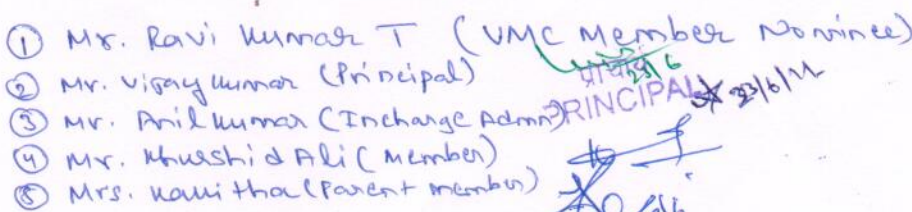 ① Mr. Ravi Kumar T (VMC Member Nominee)
② Mr. Vijay Kumar (Principal)
प्राचार्य
PRINCIPAL
23/6/22
③ Mr. Anil Kumar (Incharge Admn)
④ Mr. Khurshid Ali (Member)
⑤ Mrs. Kavitha (Parent member)